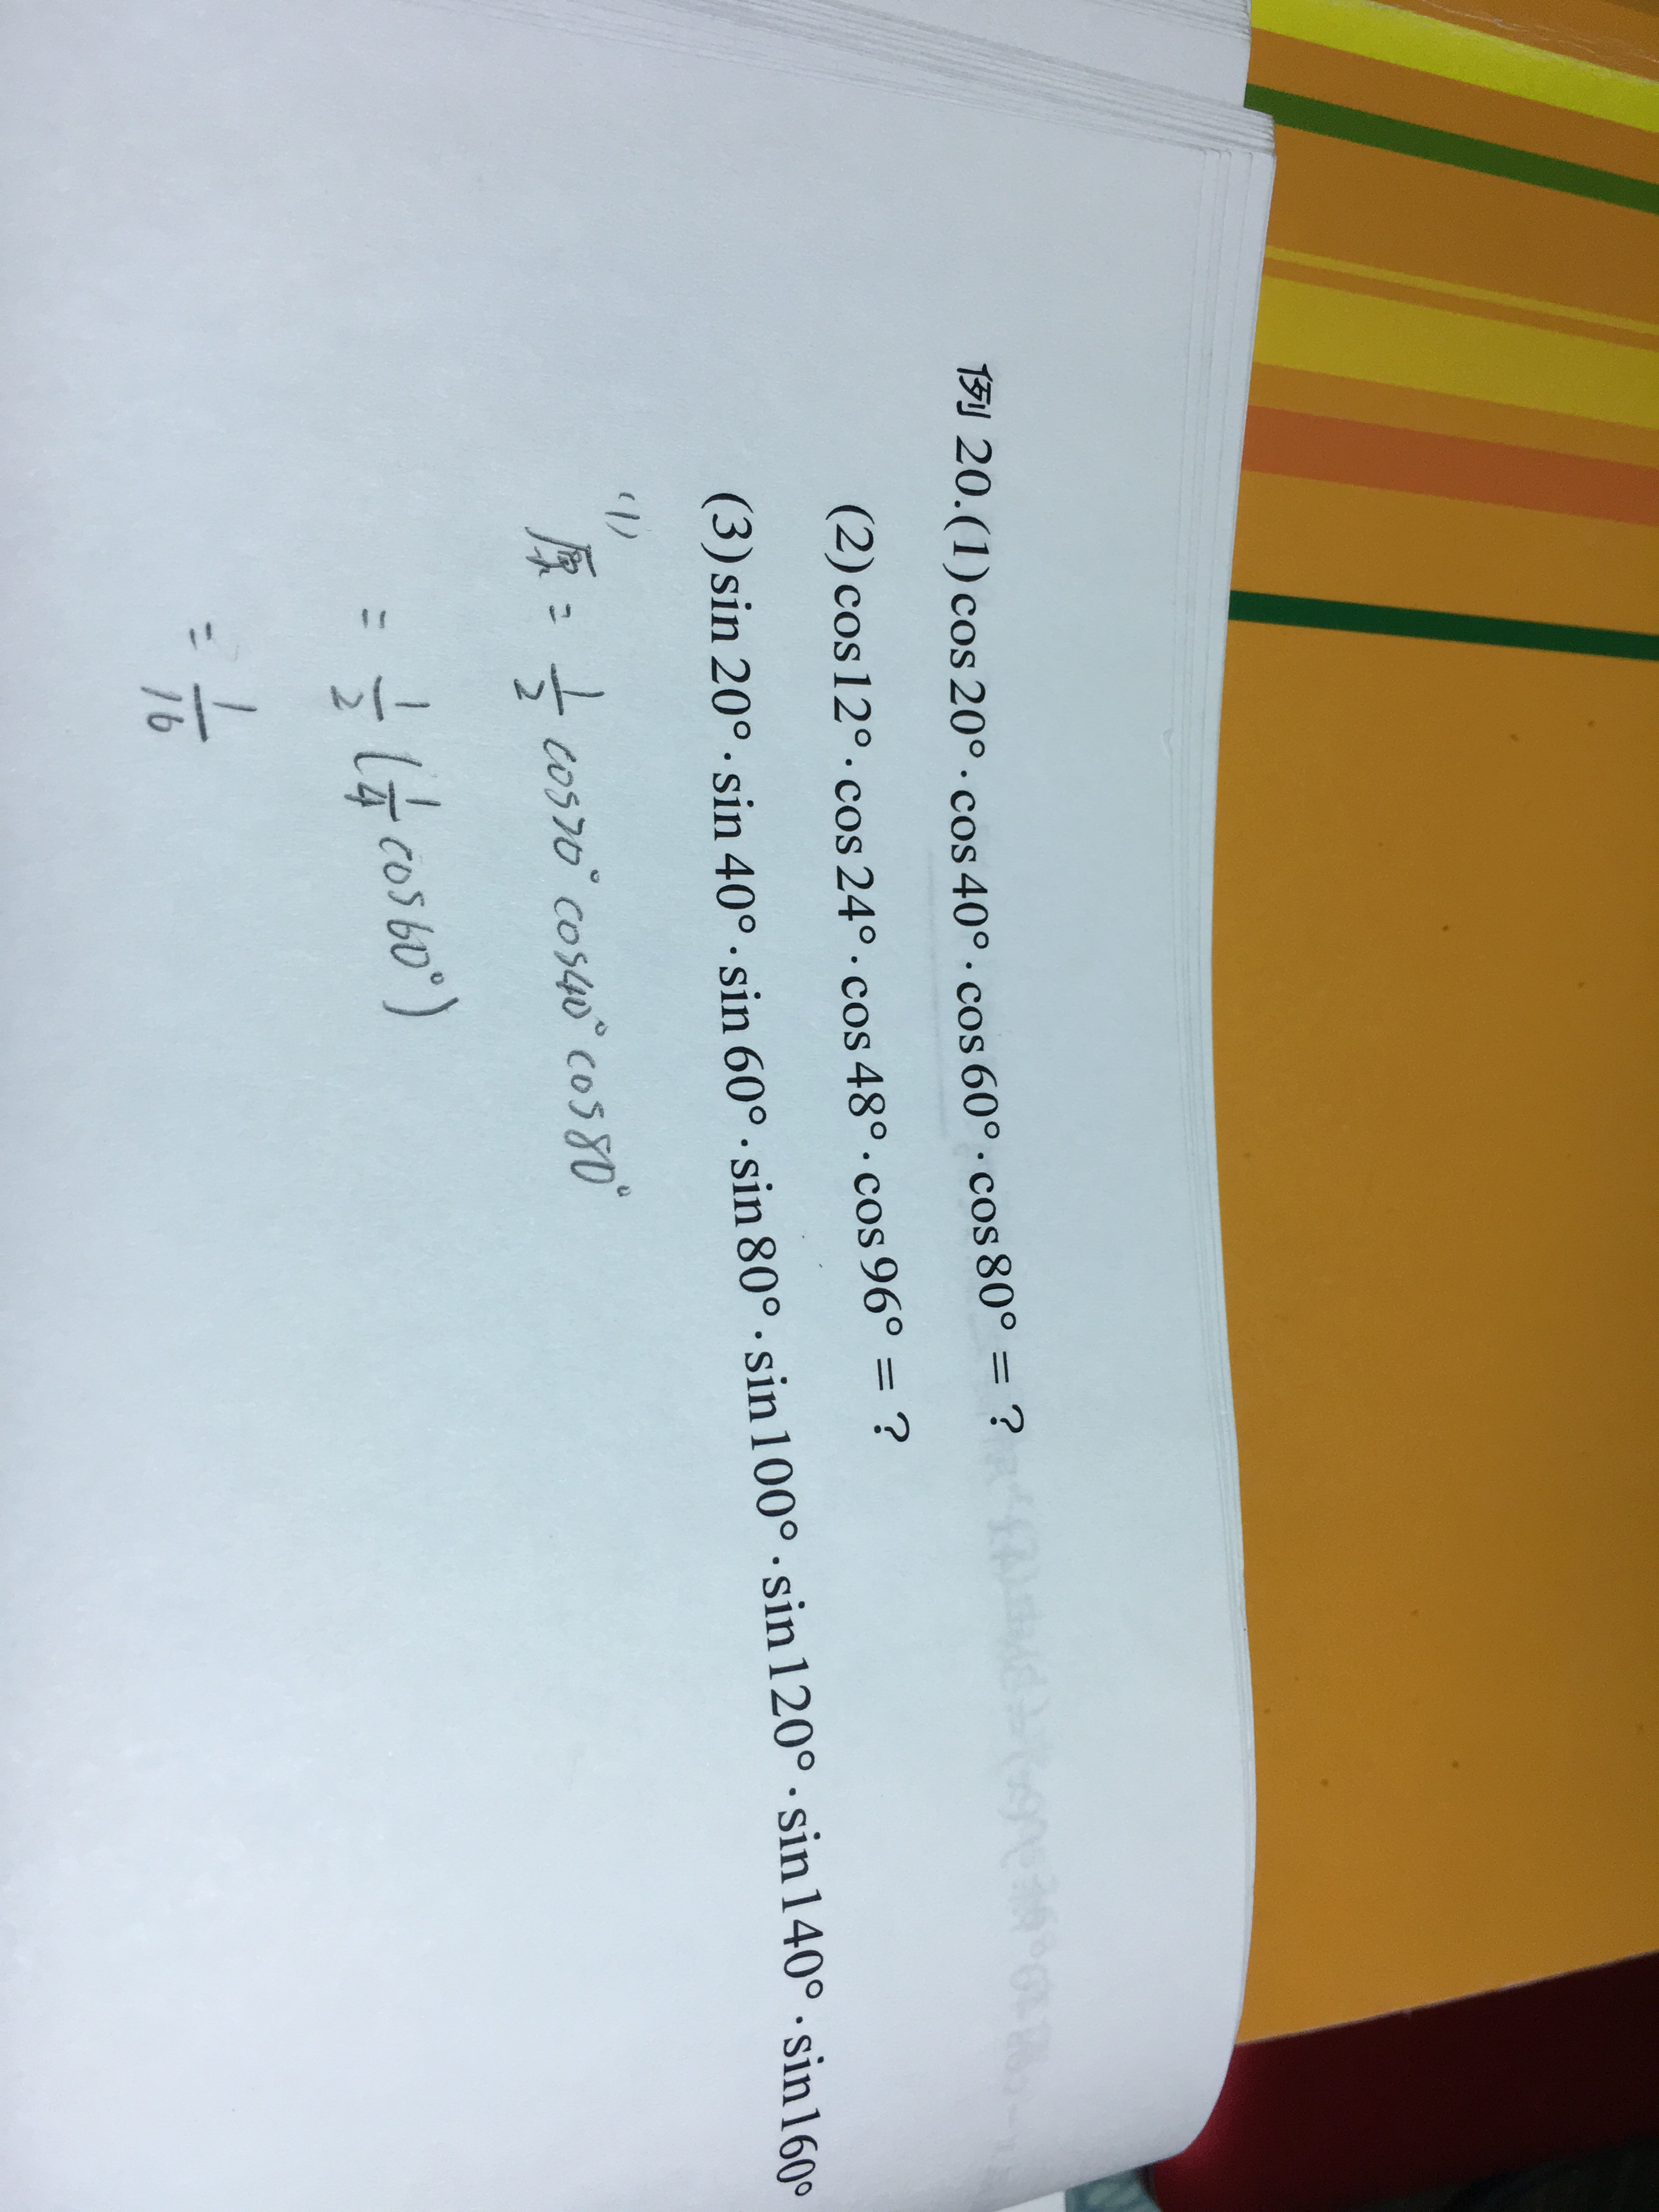 例 20.(1)cos20°·cos40°·cos60°·cos80° = ?
(2)cos12°·cos24°·cos48°·cos96° = ?
(3)sin20°·sin40°·sin60°·sin80°·sin100°·sin120°·sin140°·sin160°
(1)
原 = 1/2 cos20° cos40° cos80°
= 1/2 (1/4 cos60°)
= 1/16